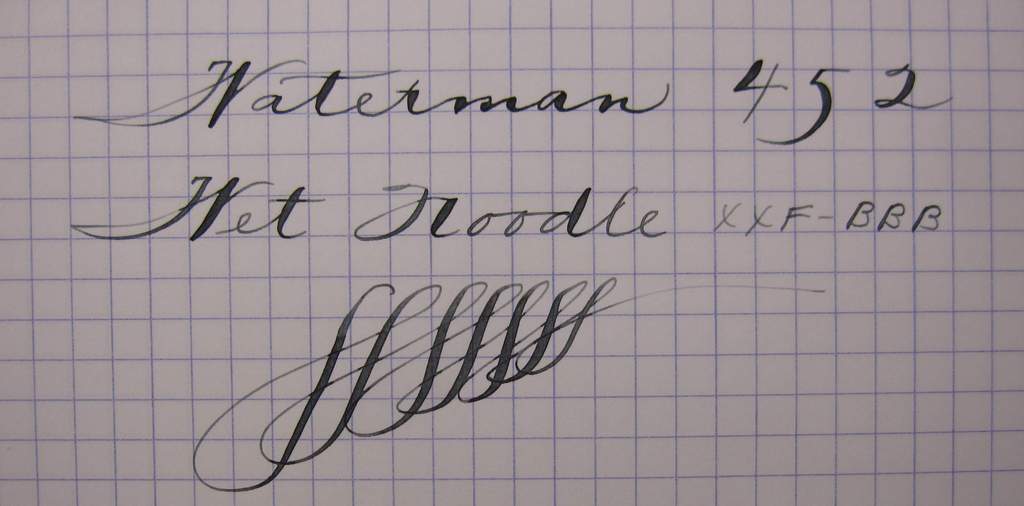 Waterman 452
Wet Noodle XXF-BBB